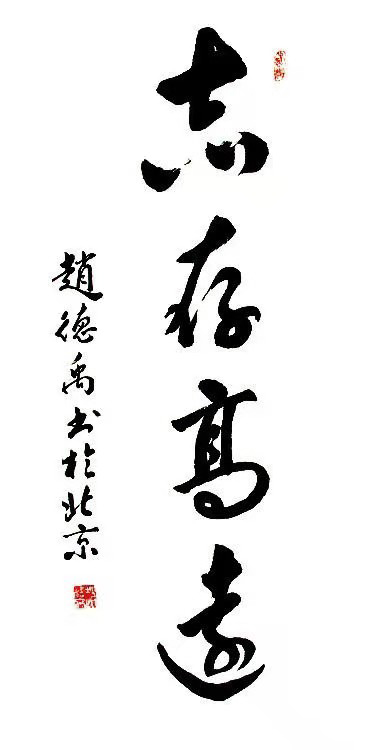 志存高遠
趙德禹书於北京